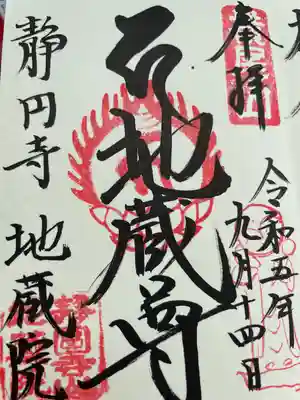 奉拝
令和五年
九月十四日
地蔵尊
静円寺 地蔵院